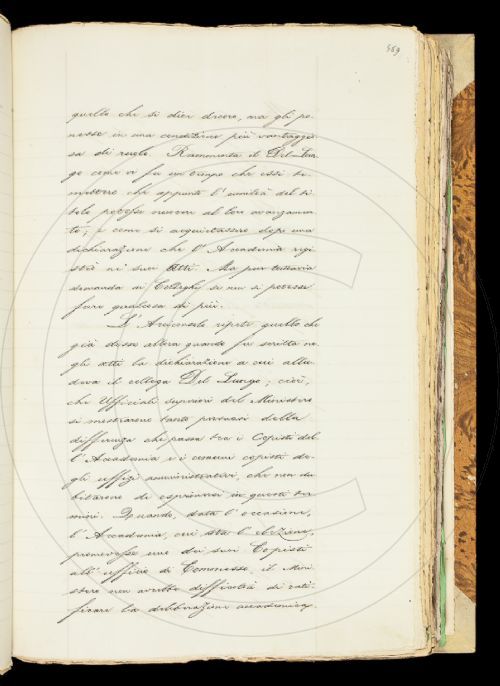 569
quello che si dice decoro, ma gli po-
nesse in una condizione più vantaggio-
sa di ruolo. Rammenta il Del Lun-
go come vi fu un tempo che essi te-
mettero che appunto l'umiltà del ti-
tolo potesse nuocere al loro avanzamen-
to; e come si acquietassero dopo una
dichiarazione che l'Accademia regi-
strò ne' suoi Atti. Ma pur tuttavia
domanda ai Colleghi se non si potesse
fare qualcosa di più.
L'Arciconsolo ripete quello che
già disse allora quando fu scritta ne-
gli atti la dichiarazione a cui allu-
deva il collega Del Lungo; cioè,
che Ufficiali superiori del Ministero
si mostrarono tanto persuasi della
differenza che passa tra i Copisti del-
l'Accademia e i comuni copisti de-
gli uffizi amministrativi, che non du-
bitarono di esprimersi in questi ter-
mini. Quando, data l'occasione,
l'Accademia, cui sta l'elezione,
promovesse uno dei suoi Copisti
all'uffizio di Commesso, il Mini-
stero non avrebbe difficoltà di rati-
ficare la deliberazione accademica.